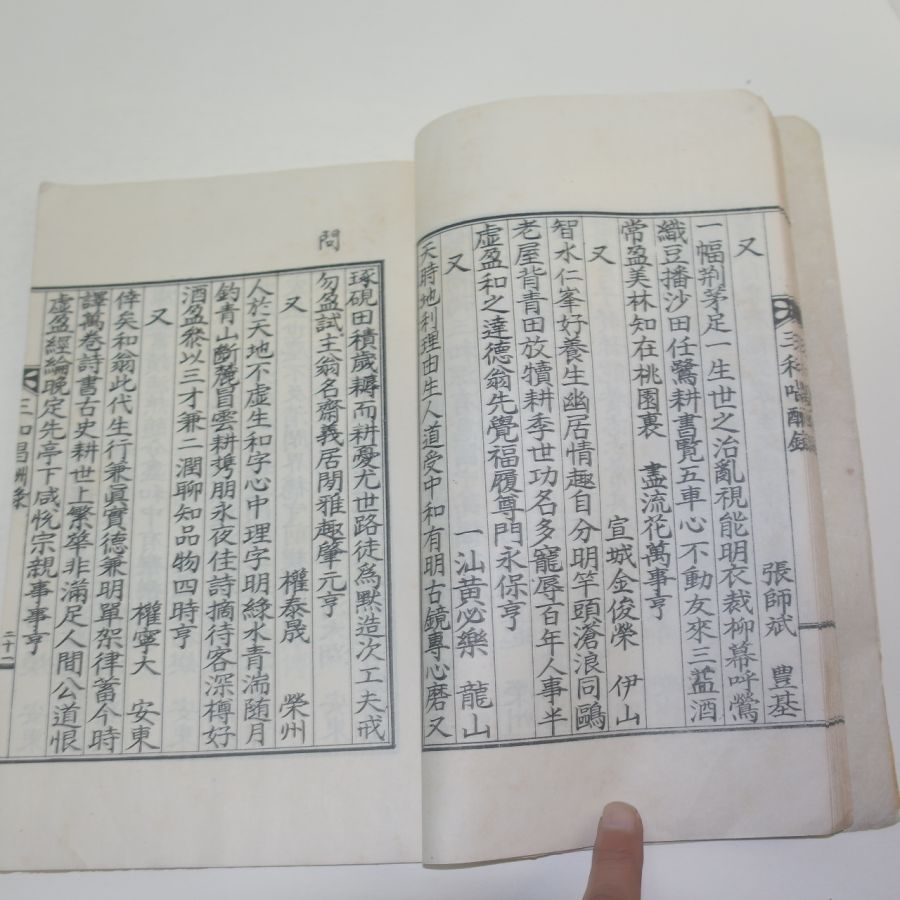 又 張師斌 豊基
一幅荆茅足一生世之治亂視能明衣裁柳幕呼鶯
織豆播沙田任鷺耕書覽五車心不動友來三盍酒
常盈美林知在桃園裏 盡流花萬事亨
又 宣城金俊榮 伊山
智水仁峯好養生幽居情趣自分明竿頭滄浪同鷗
老屋背青田放犢耕季世功名多寵辱百年人事半
虛盈和之達德翁先覺福履尊門永保亨
又 一汕黃必樂 龍山
天時地利理由生人道受中和有明古鏡專心磨又
問
琢硯田積歲耨而耕憂尤世路徒為默造次工夫戒
勿盈試主翁名齋義居閒雅趣肇元亨
又 權泰晟 榮州
人於天地不虛生和字心中理字明綠水青湍随月
釣青山斷麓冒雲耕娉朋永夜佳詩摘待客深樽好
酒盈叅以三才兼二潤聊知品物四時亨
又 權寧大 安東
倖矣和翁此代生行兼眞實德兼明單架律蓄今時
譯萬卷詩書古史耕世上繁華非滿足人間公道恨
虛盈經綸晩定先亭下咸悅宗親事事亨
二十